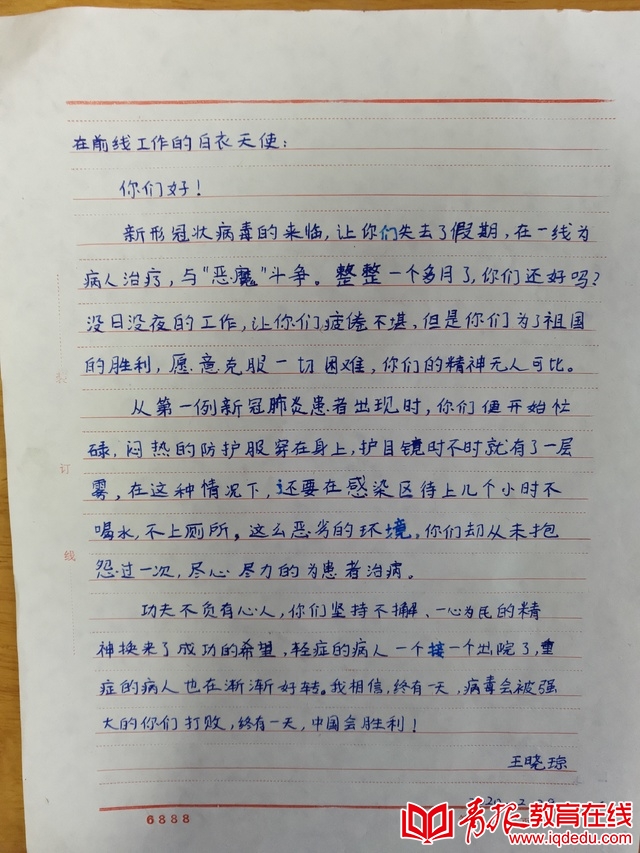 在前线工作的白衣天使：
你们好！
新形冠状病毒的来临，让你们失去了假期，在一线为
病人治疗，与“恶魔”斗争。整整一个多月了，你们还好吗？
没日没夜的工作，让你们疲倦不堪，但是你们为了祖国
的胜利，愿意克服一切困难，你们的精神无人可比。
从第一例新冠肺炎患者出现时，你们便开始忙
碌，闷热的防护服穿在身上，护目镜时不时就有了一层
雾，在这种情况下，还要在感染区待上几个小时不
喝水，不上厕所。这么恶劣的环境，你们却从未抱
怨过一次，尽心尽力的为患者治病。
功夫不负有心人，你们坚持不懈、一心为民的精
神换来了成功的希望，轻症的病人一个接一个出院了，重
症的病人也在渐渐好转。我相信，终有一天，病毒会被强
大的你们打败，终有一天，中国会胜利！
王晓琼
订
线
6888
青报教育在线
www.iqdedu.com